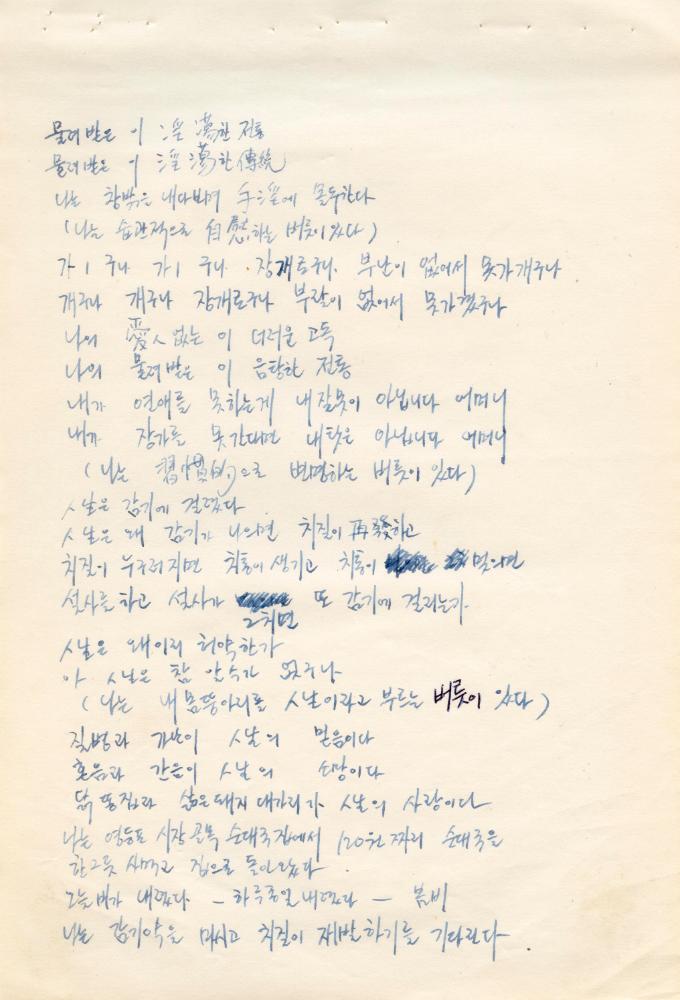 물려받은 이 淫蕩한 전통
물려받은 이 淫蕩한 傳統
나는 창밖을 내다보며 手淫에 몰두한다
(나는 습관적으로 自慰하는 버릇이 있다)
가ㅣ구나 가ㅣ구나. 장개로구나. 부난이 없어서 못가개구나
개구나 개구나 장개로구나 부랄이 없어서 못가겠구나
나의 愛人 없는 이 더러운 고독
나의 물려받은 이 음탕한 전통
내가 연애를 못하는게 내잘못이 아닙니다 어머니
내가 장가를 못간다면 내탓은 아닙니다 어머니
(나는 習慣的으로 변명하는 버릇이 있다)
시날은 감기에 걸렸다
시날은 왜 감기가 나으면 치질이 再發하고
치질이 누구러지면 치통이 생기고 치통이 멎으면
설사를 하고 설사가 그치면 또 감기에 걸리는가.
시날은 왜이리 허약한가
아 시날은 참 알수가 없구나
(나는 내 몸뚱아리를 시날이라고 부르는 버릇이 있다)
질병과 가난이 시날의 믿음이다
혼음과 간음이 시날의 소망이다
닭똥집과 삶은돼지 대가리가 시날의 사랑이다
나는 영등포 시장골목 순대국집에서 120원 짜리 순대국을
한그릇 사먹고 집으로 돌아왔다.
그늘비가 내렸다 – 하루종일 내렸다 – 봄비
나는 감기약을 마시고 치질이 재발하기를 기다린다.